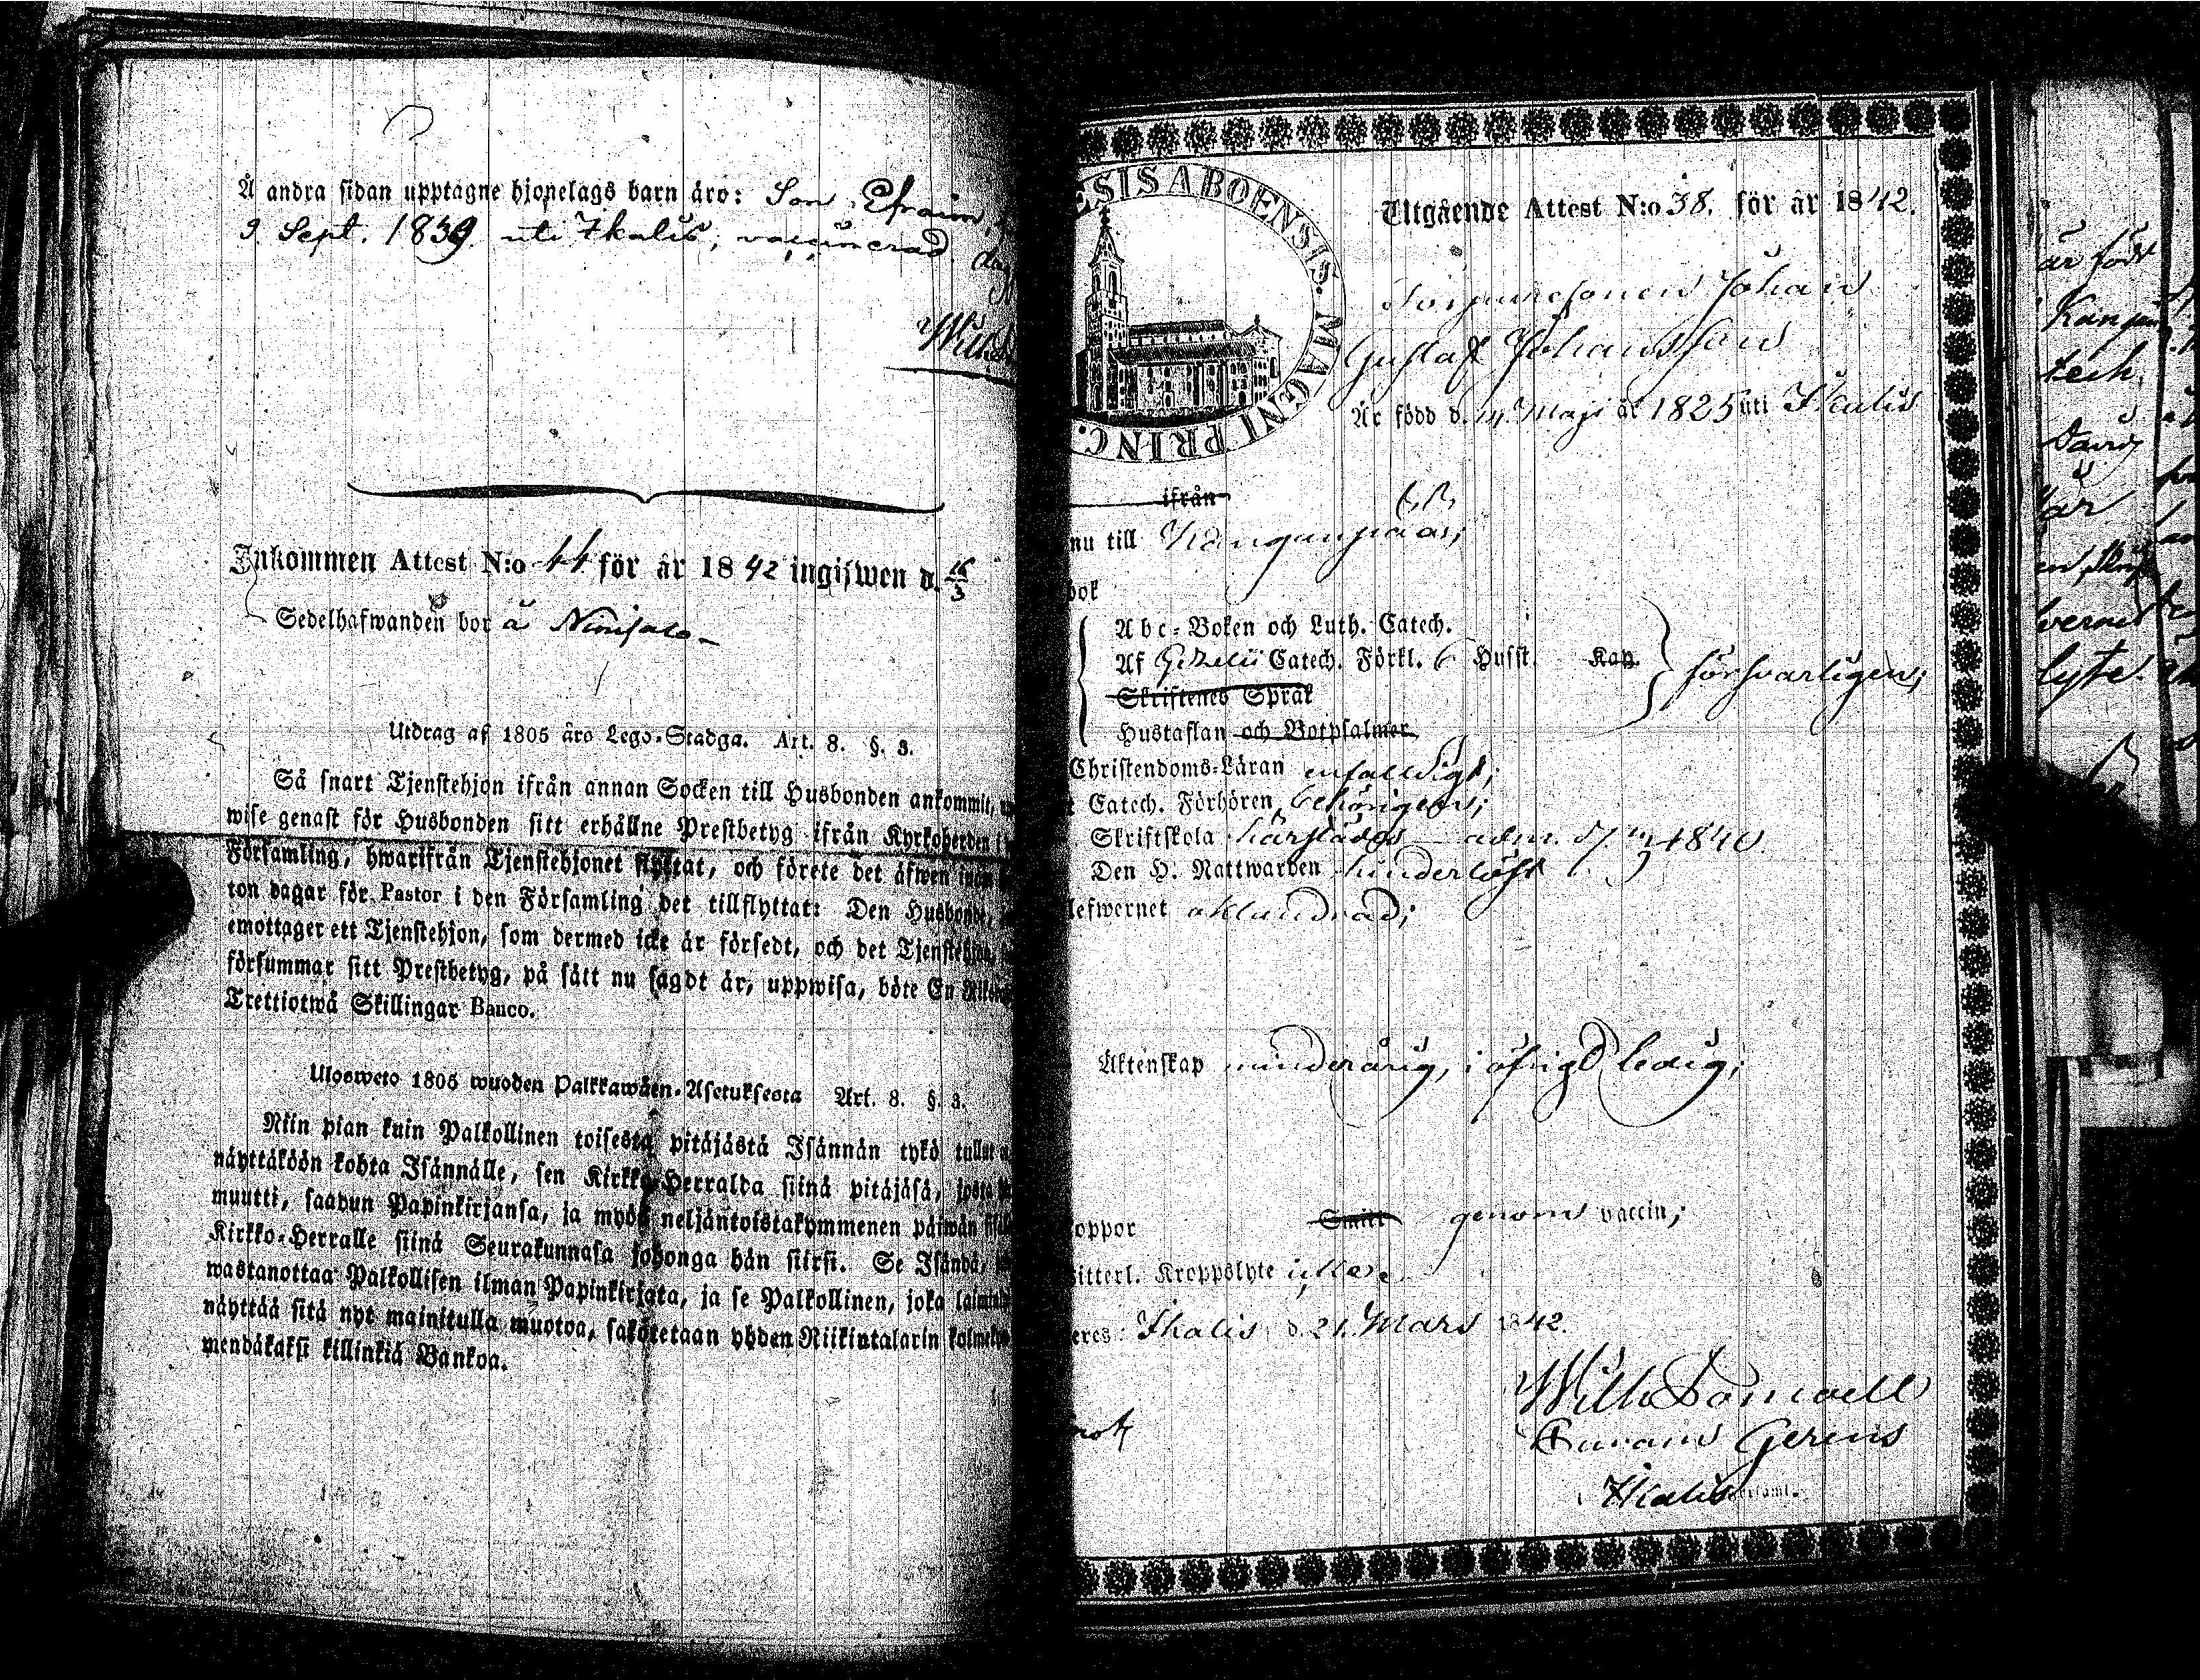 Å andra sidan upptagne hjonelags barn äro: Son Efraim,
9 Sept. 1839. uti Ikalis, vaccinerad.
Wilh
Inkommen Attest N:o 44 för år 1842 ingifwen d. 16/3
Sedelhafwanden bor å
Utdrag af 1805 års Lego-Stadga. Art. 8. §. 3.
Så snart Tjenstehjon ifrån annan Socken till Husbonden ankommit,
wise genast för Husbonden sitt erhållne Prestbetyg ifrån Kyrkoherden i
Församling, hwarifrån Tjenstehjonet flyttat, och förete det äfwen inom
ton dagar för Pastor i den Församling det tillflyttat: Den Husbonde,
emottager ett Tjenstehjon, som dermed icke är försedt, och det Tjenstehjon,
försummar sitt Prestbetyg, på sätt nu sagdt är, uppwisa, böte En
Trettiotwå Skillingar Banco.
Ulosweto 1805 wuoden Palkkawäen-Asetuksesta Art. 8. §. 3.
Niin pian kuin Palkollinen toisesta pitäjästä Isännän tykö tullut
näyttäköön kohta Isännälle, sen Kirkko-Herralda siinä pitäjäsä, josta
muutti, saadun Papinkirjansa, ja myös neljäntoistakymmenen päiwän
Kirkko-Herralle siinä Seurakunnasa johonga hän siirsi. Se Isändä,
wastanottaa Palkollisen ilman Papinkirjata, ja se Palkollinen, joka
näyttää sitä nyt mainitulla muotoa, sakotetaan yhden Riikintalarin
mendäkaksi killinkiä Bankoa.
ESIS ABOENSIS. MAGNI PRINC.
Utgående Attest N:o 38. för år 1842.
Johan
Gustaf Johansson
Är född d. 14. Maji år 1825 uti Ikalis
ifrån
nu till Kanganpää;
bok
Abc-Boken och Luth. Catech.
Af Gezelii Catech. Förkl. 6 Husst. Kap. försvarligen;
Skriftenes Språk
Hustaflan och Botpsalmer
Christendoms-Läran enfaldigt;
Catech. Förhören behörigen;
Skriftskola härstädes adm. 1840.
Den H. Nattwarden hinderlöst
lefwernet oklandrad;
Äktenskap minderårig, i öfrigt ledig;
oppor Smitt genom vaccin;
itterl. Kroppslyte
eres: Ikalis, d. 21. Mars 1842.
Wilh
Gerens
Ikalis
är född
Kangan
tech.
David
lyte.